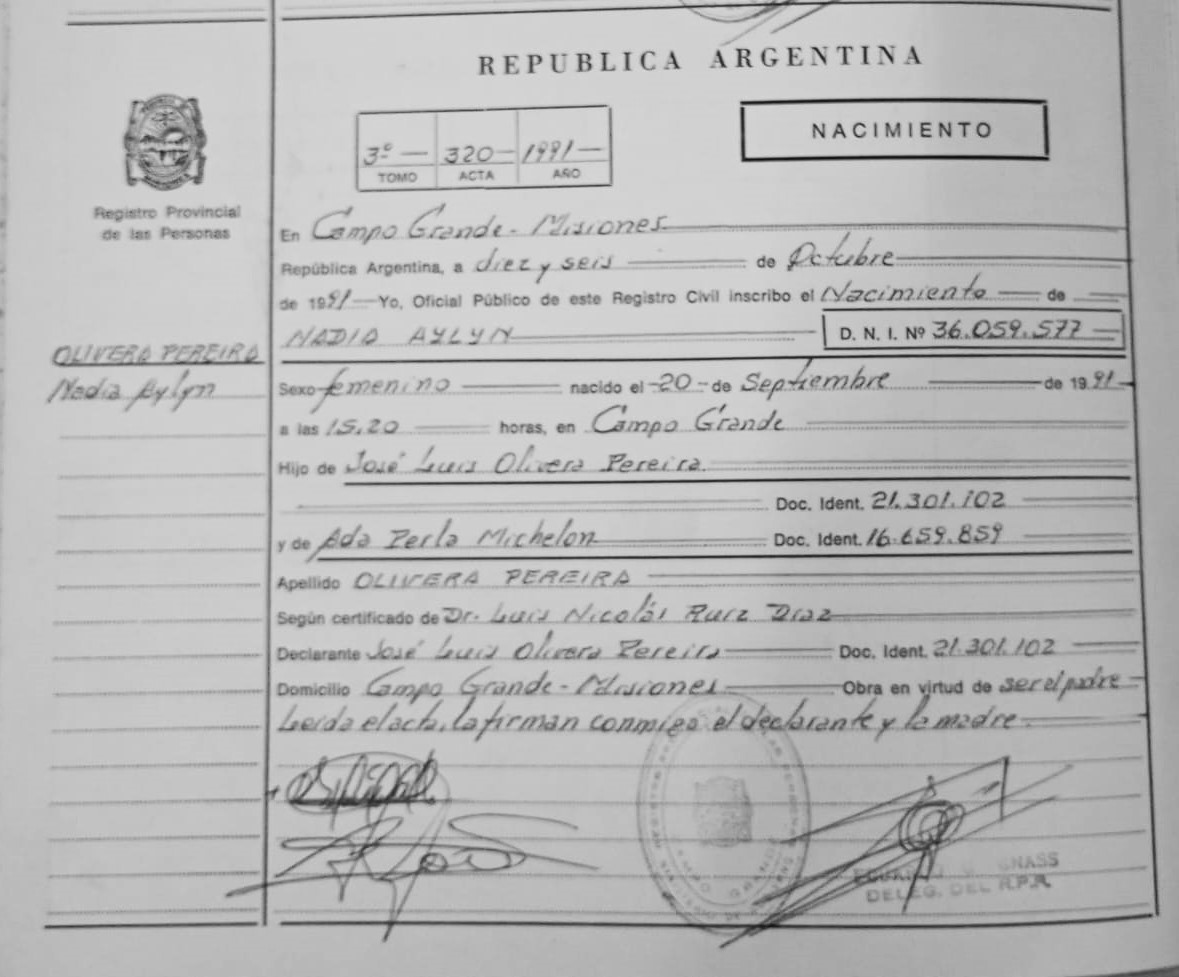 REPUBLICA ARGENTINA
NACIMIENTO
3º — 320 — 1991 —
TOMO ACTA AÑO
Registro Provincial
de las Personas
En Campo Grande - Misiones.
República Argentina, a diez y seis de Octubre
de 1991 — Yo, Oficial Público de este Registro Civil inscribo el Nacimiento — de
NADIA AYLYN D. N. I. Nº 36.059.577
OLIVERA PEREIRA
Nadia Aylyn
Sexo femenino nacido el -20- de Septiembre de 1991-
a las 15,20 horas, en Campo Grande
Hijo de José Luis Olivera Pereira.
Doc. Ident. 21.301.102
y de Ada Perla Michelon Doc. Ident. 16.659.859
Apellido OLIVERA PEREIRA
Según certificado de Dr. Luis Nicolás Ruiz Diaz
Declarante José Luis Olivera Pereira Doc. Ident. 21.301.102
Domicilio Campo Grande - Misiones Obra en virtud de ser el padre
Leída el acta, la firman conmigo el declarante y la madre.
CAMPO GRANDE
DELEG. DEL R.P.P.